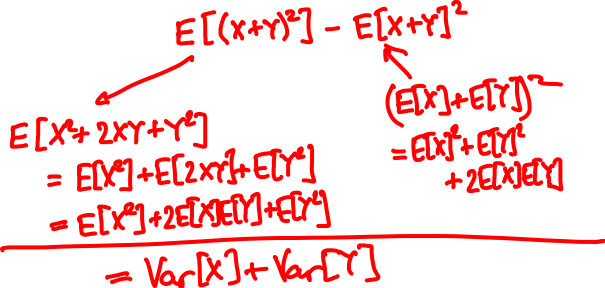 E[(X+Y)²] - E[X+Y]²
E[X²+2XY+Y²]
= E[X²]+E[2XY]+E[Y²]
= E[X²]+2E[X]E[Y]+E[Y²]
(E[X]+E[Y])²
= E[X]²+E[Y]²
+2E[X]E[Y]
= Var[X]+Var[Y]